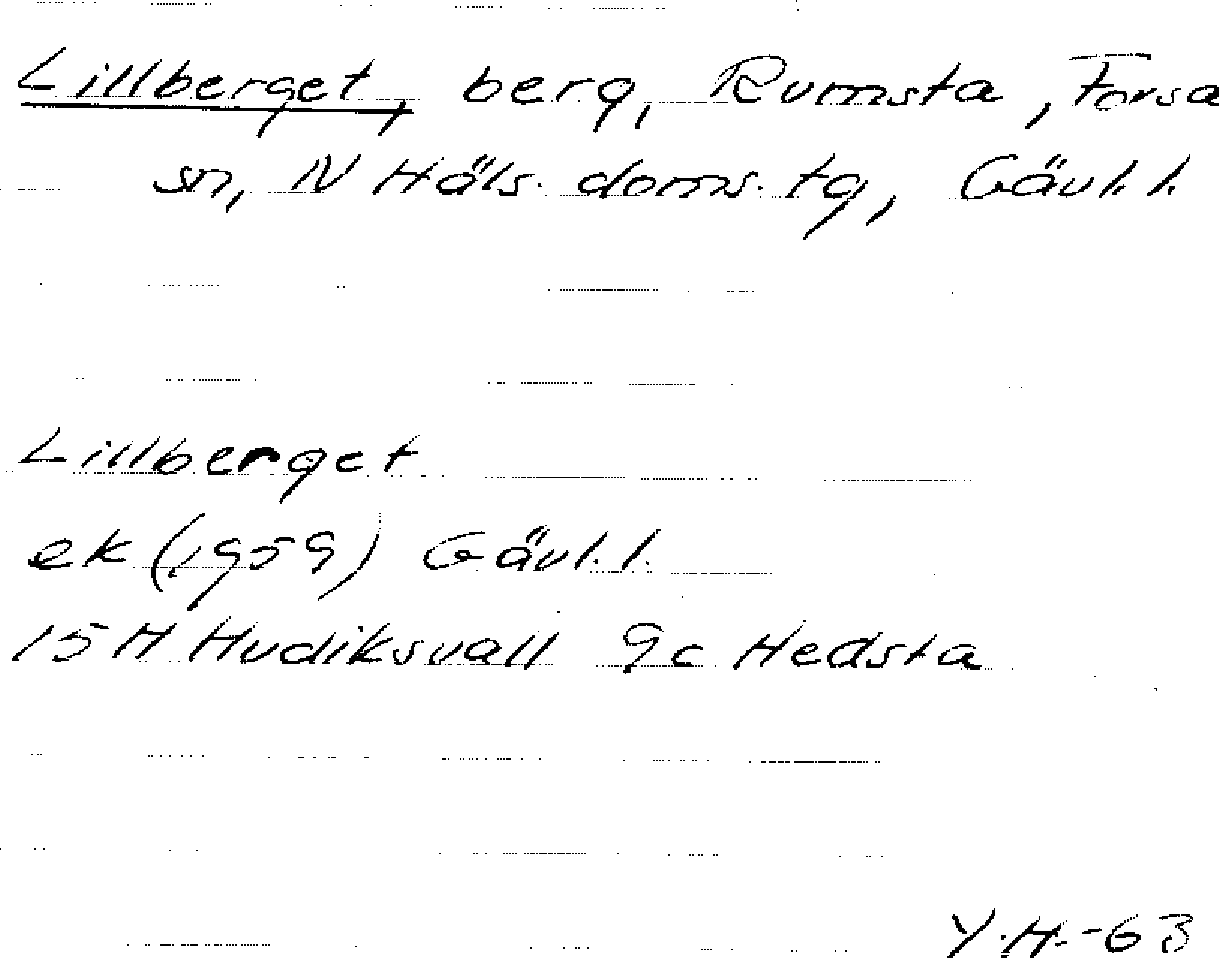 Lillberget, berg, Rumsta, Forsa
sn, N Häls. doms. tg, Gävl. l.
Lillberget
ek (1959) Gävl. l.
15 H Hudiksvall 9c Hedsta
Y.H.-63